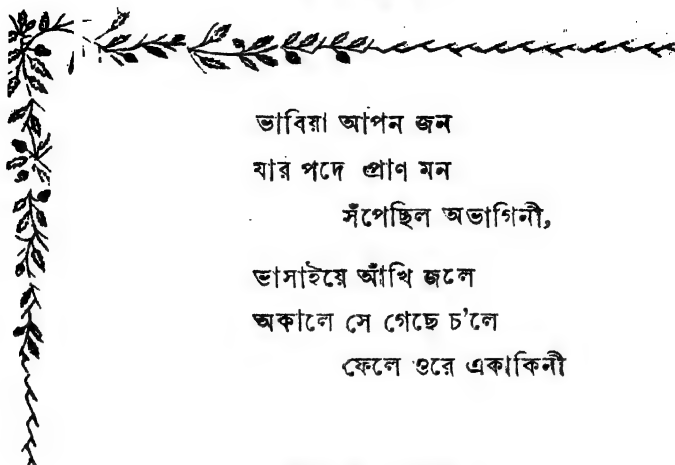 ভাবিয়া আপন জন
যার পদে প্রাণ মন
সঁপেছিল অভাগিনী,
ভাসাইয়ে আঁখি জলে
অকালে সে গেছে চ'লে
ফেলে ওরে একাকিনী